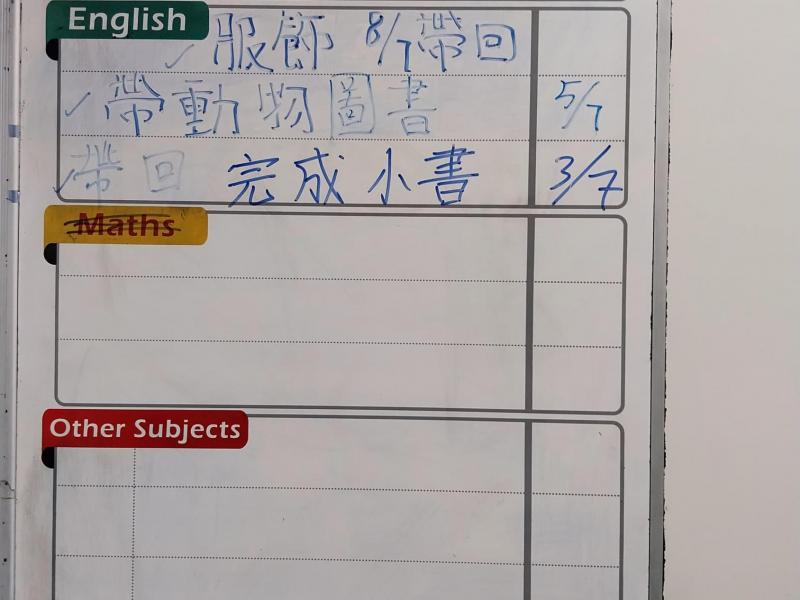 English
✓ 服飾 8/7 帶回
✓ 帶動物圖書 5/7
✓ 帶回 完成小書 3/7
Maths
Other Subjects